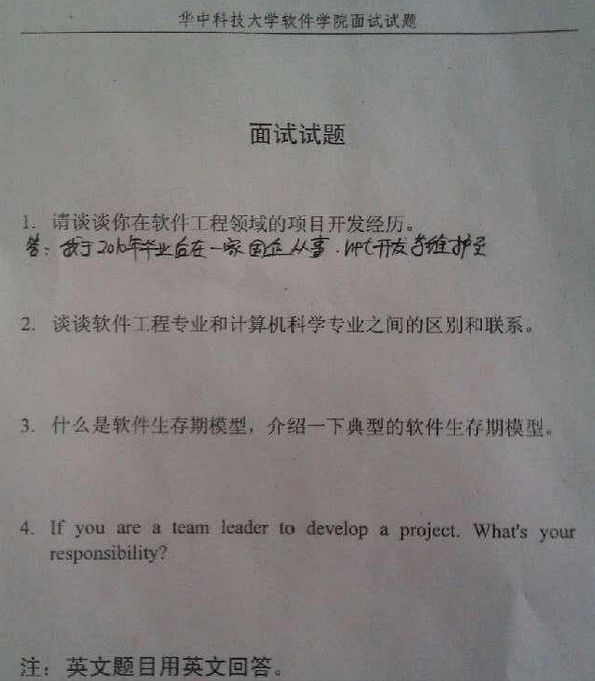 华中科技大学软件学院面试试题
面试试题
1. 请谈谈你在软件工程领域的项目开发经历。
答：我于2010年毕业后在一家国企从事.开发 维护至
2. 谈谈软件工程专业和计算机科学专业之间的区别和联系。
3. 什么是软件生存期模型，介绍一下典型的软件生存期模型。
4. If you are a team leader to develop a project. What's your
responsibility?
注：英文题目用英文回答。